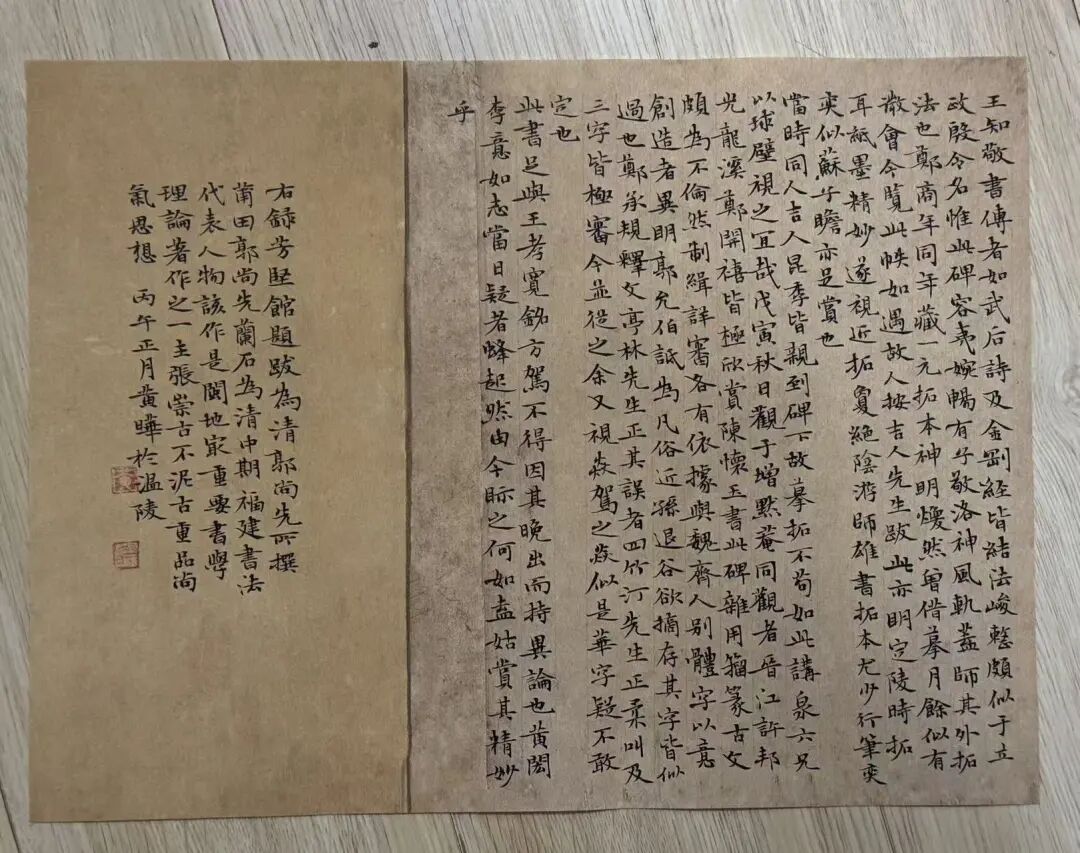 王知敬書傳者如武后詩及金剛経皆結法峻整頗似于立
政殷令名惟此碑容夷婉暢有子敬洛神風軌蓋師其外拓
法也鄭商年同年藏一元拓本神明煥然曾借摹月餘似有
散會今覧此帙如遇故人按吉人先生跋此亦明定陵時拓
耳紙墨精妙遂視近拓夐絕陰游師雄書拓本尤少行筆奕
奕似蘇子瞻亦足賞也
當時同人吉人昆季皆親到碑下故摹拓不苟如此講泉六兄
以球壁視之宜哉戊寅秋日觀于增默菴同觀者晉江許邦
光龍溪鄭開禧皆極欣賞陳懷玉書此碑雜用籀篆古文
頗為不倫然制緝詳審各有依據與魏齊人別體字以意
創造者異明郭允伯詆為凡俗近孫退谷欲摘存其字皆似
過也鄭承規釋文亭林先生正其誤者四竹汀先生正柔叫及
三字皆極審今並從之余又視焱駕之焱似是華字疑不敢
定也
此書足與王孝寬銘方駕不得因其晚出而持異論也黄閎
李意如志當日疑者蜂起然由今眎之何如盍姑賞其精妙
乎
右録芳堅館題跋為清郭尚先所撰
莆田郭尚先蘭石為清中期福建書法
代表人物該作是閩地最重要書學
理論著作之一主張崇古不泥古重品尚
氣思想 丙午正月黄曄於温陵